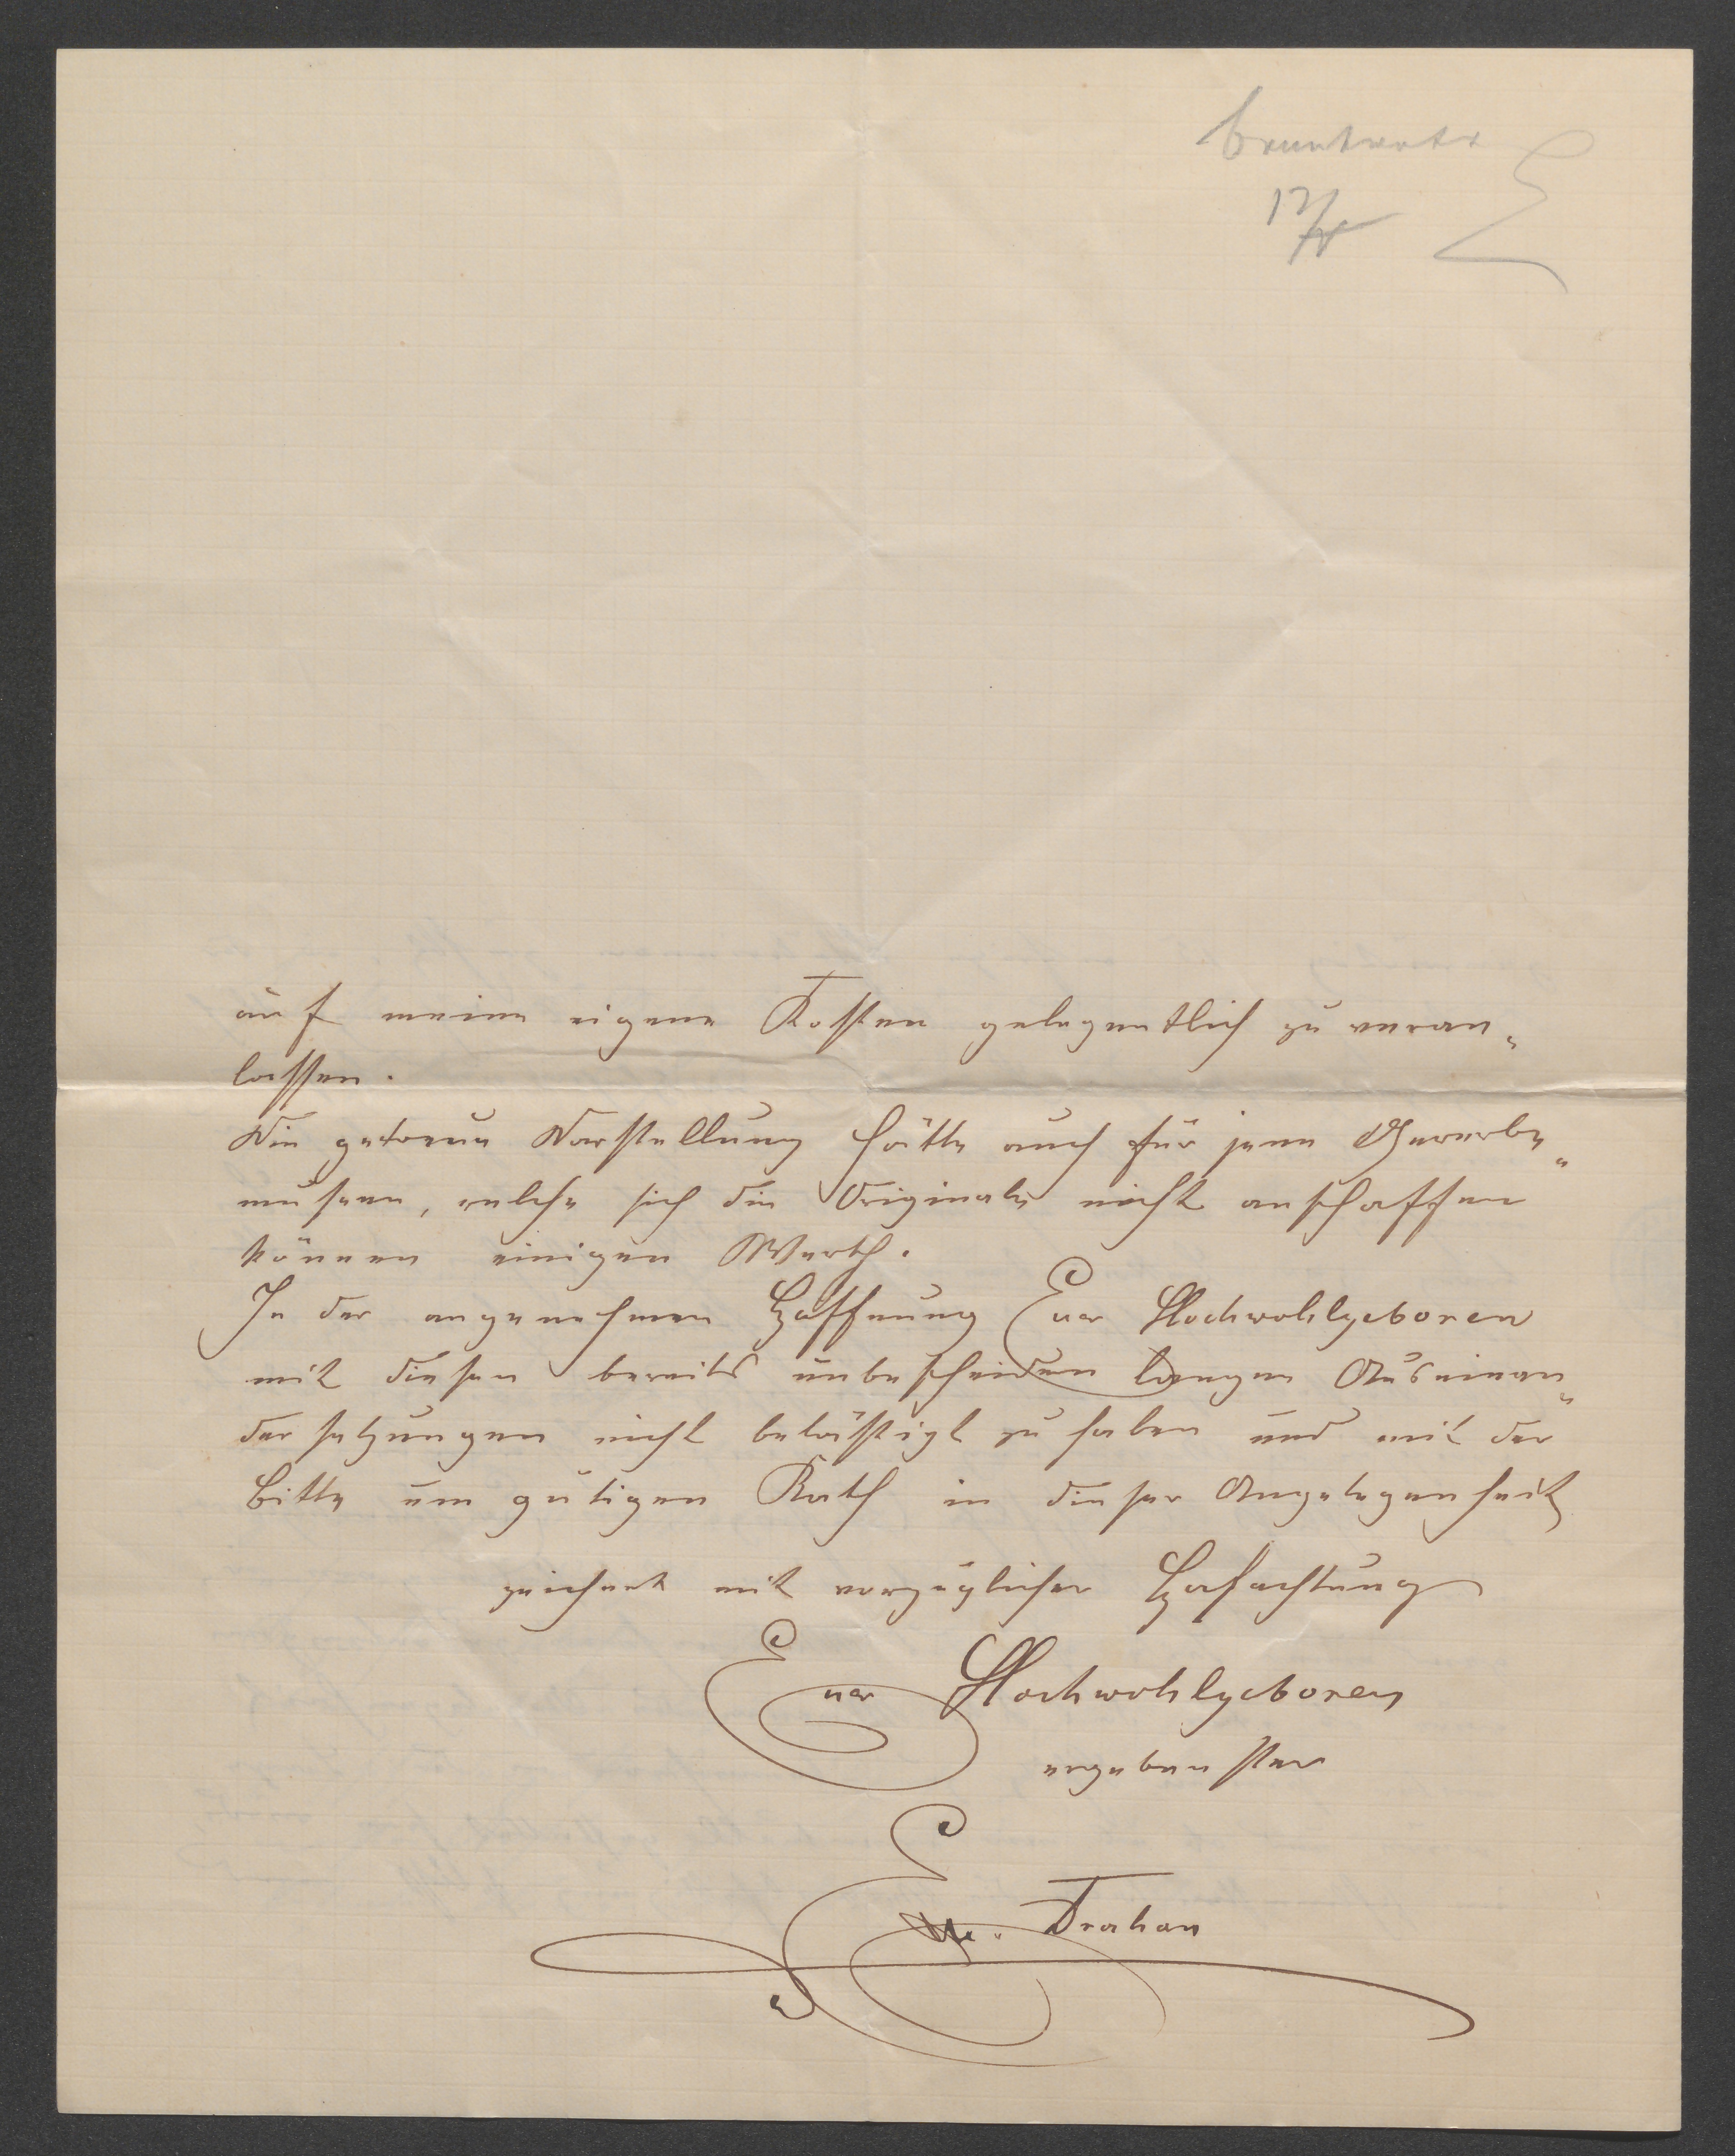 beantwortet
12/
auf meine eigene Kosten gelegentlich zu veran„
lassen.
Die getreue Darstellung hätte auch für jene Gewerbe„
museen, welche sich die Originale nicht anschaffen
können einigen Werth.
In der angenehmen Hoffnung Euer Hochwohlgeboren
mit diesen bereits unbescheiden langen Auseinan„
dersetzungen nicht belästigt zu haben und mit der
Bitte um gütigen Rath in dieser Angelegenheit
zeichnet mit vorzüglicher Hochachtung
Euer Hochwohlgeboren
ergebenster
Em. Trahan